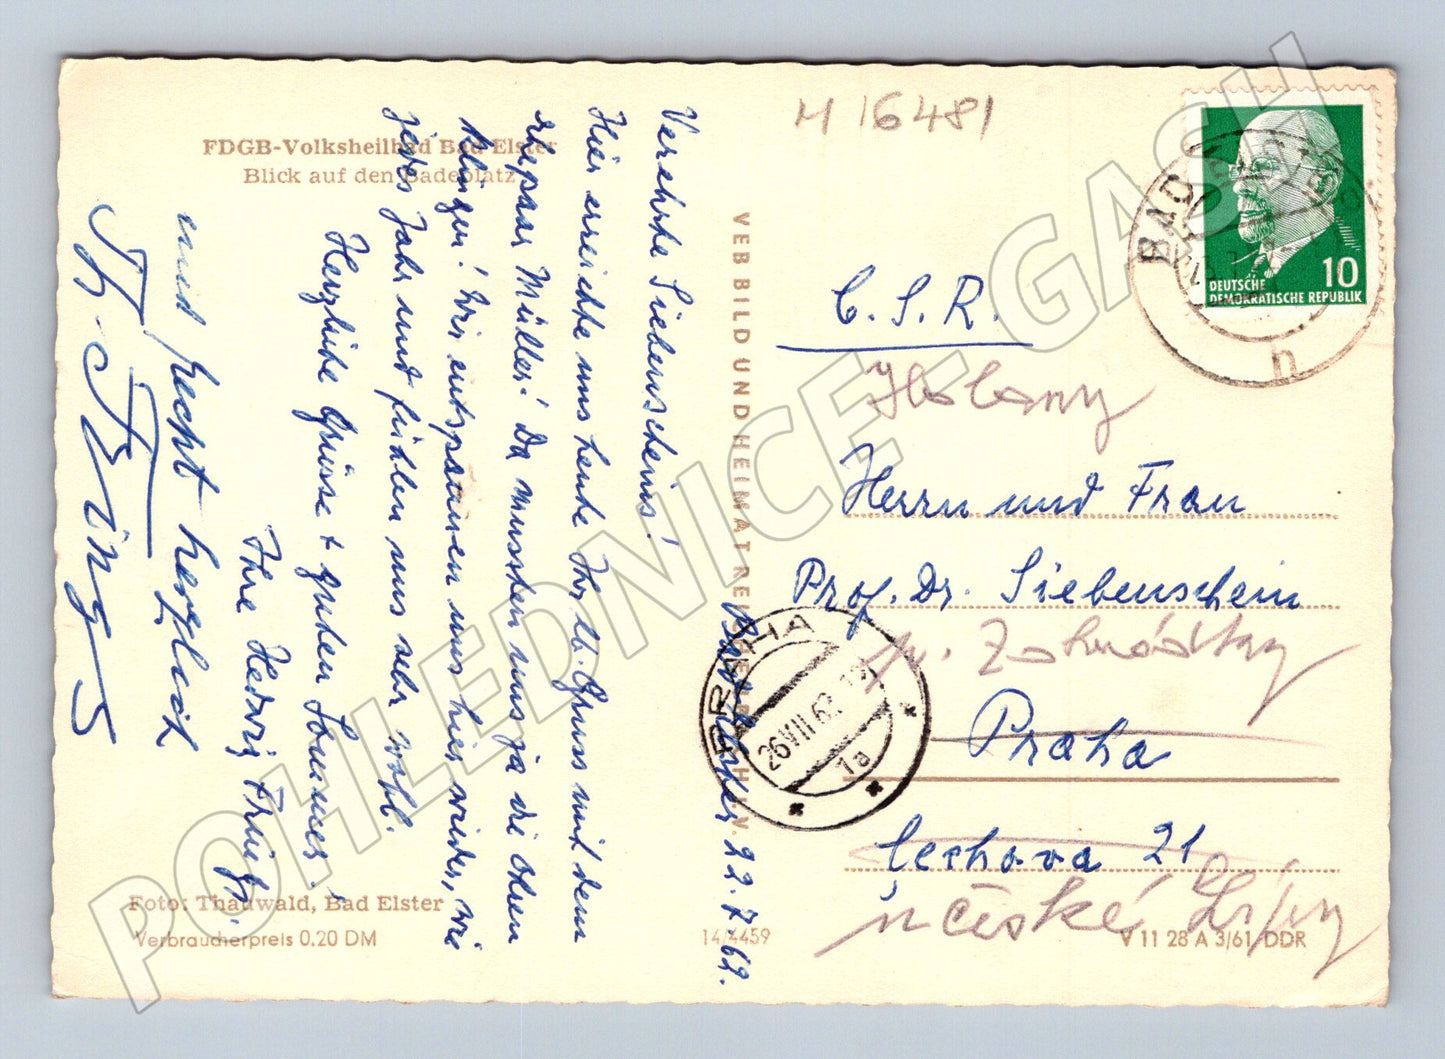 M 16481
FDGB-Volksheilbad Bad Elster
Blick auf den Badeplatz
Bad Elster 22.7.62.
Verehrte Siebenscheins!
Hier erreichte uns heute Ihr lb. Gruss mit dem
Ehepaar Müller! Da mussten uns ja die Ohren
klingen! Wir entspannen uns hier wieder, wie
jedes Jahr und fühlen uns sehr wohl.
Herzliche Grüsse + guten Sommer!
Ihre Hedwig
und recht herzlich
VEB BILD UND HEIMAT REICHENBACH I. V.
BAD ELSTER
n
10
DEUTSCHE
DEMOKRATISCHE REPUBLIK
Č.S.R.
Herrn und Frau
Prof. Dr. Siebenschein
Praha
Čechova 21
u České Lípy
PRAHA
26 VII 62
1a
Foto: Thauwald, Bad Elster
Verbraucherpreis 0.20 DM
14/4459
V 11 28 A 3/61 DDR
POHLEDNICE-GASH